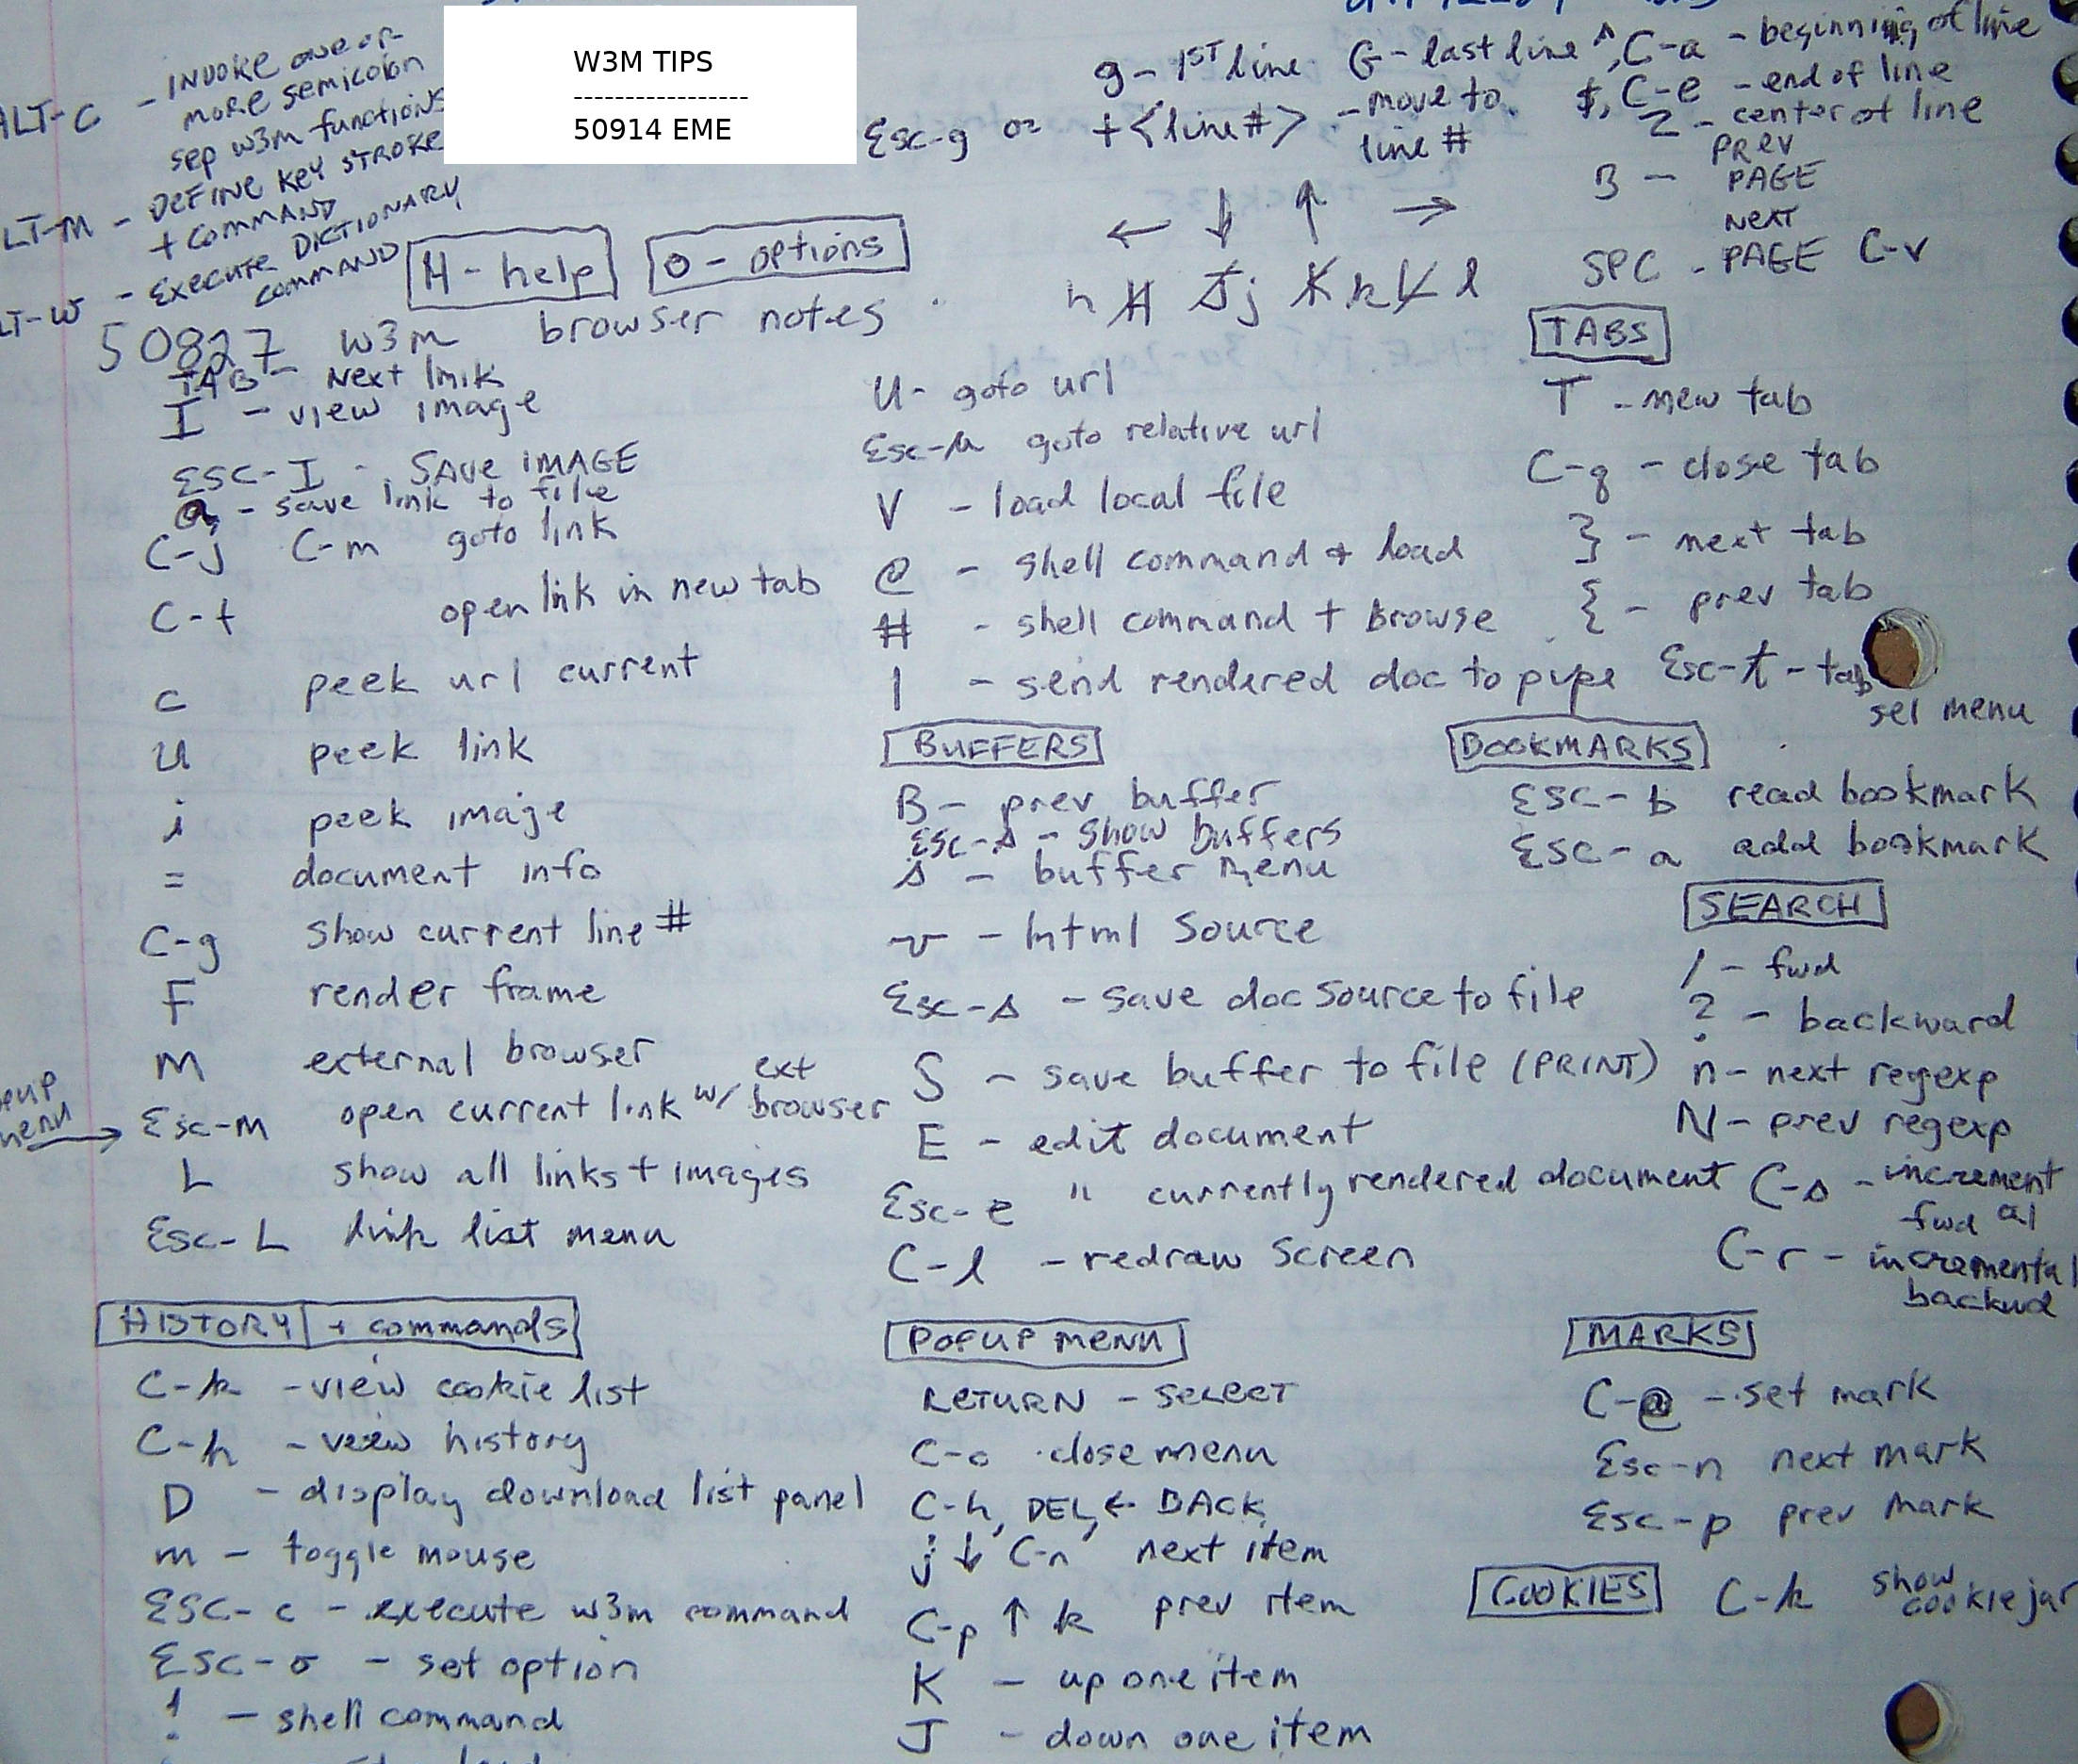 W3M TIPS
-----------------
50914 EME
ALT-C - INVOKE one or
more semicolon
sep w3m functions
LT-M - DEFINE KEY STROKE
+ COMMAND
LT-W - EXECUTE DICTIONARY
COMMAND
g - 1ST line G - last line ^, C-a - beginning of line
Esc-g or +<line#> - move to line #
$, C-e - end of line
Z - center of line
B - PREV PAGE
SPC - NEXT PAGE C-v
← ↓ ↑ →
h j k l
H - help
O - options
50827 w3m browser notes
TAB - Next link
I - view image
ESC-I - SAVE IMAGE
a - save link to file
C-j C-m goto link
C-t open link in new tab
c peek url current
u peek link
i peek image
= document info
C-g show current line #
F render frame
M external browser
Esc-m open current link w/ ext browser
menu →
L show all links + images
Esc-L link list menu
HISTORY + commands
C-k - view cookie list
C-h - view history
D - display download list panel
m - toggle mouse
ESC-c - execute w3m command
ESC-o - set option
! - shell command
U - goto url
Esc-u goto relative url
V - load local file
@ - shell command + load
# - shell command + Browse
| - send rendered doc to pipe
BUFFERS
B - prev buffer
Esc-s - show buffers
s - buffer menu
v - html source
Esc-s - save doc source to file
S - save buffer to file (PRINT)
E - edit document
Esc-e " currently rendered document
C-l - redraw screen
POPUP MENU
RETURN - SELECT
C-c close menu
C-h, DEL, ← BACK
j ↓ C-n next item
C-p ↑ k prev item
K - up one item
J - down one item
TABS
T - new tab
C-q - close tab
} - next tab
{ - prev tab
Esc-t - tab
sel menu
BOOKMARKS
ESC-b read bookmark
ESC-a add bookmark
SEARCH
/ - fwd
? - backward
n - next regexp
N - prev regexp
C-s - incremental
fwd
C-r - incremental
backwd
MARKS
C-@ - set mark
Esc-n next mark
Esc-p prev mark
COOKIES C-k show cookie jar